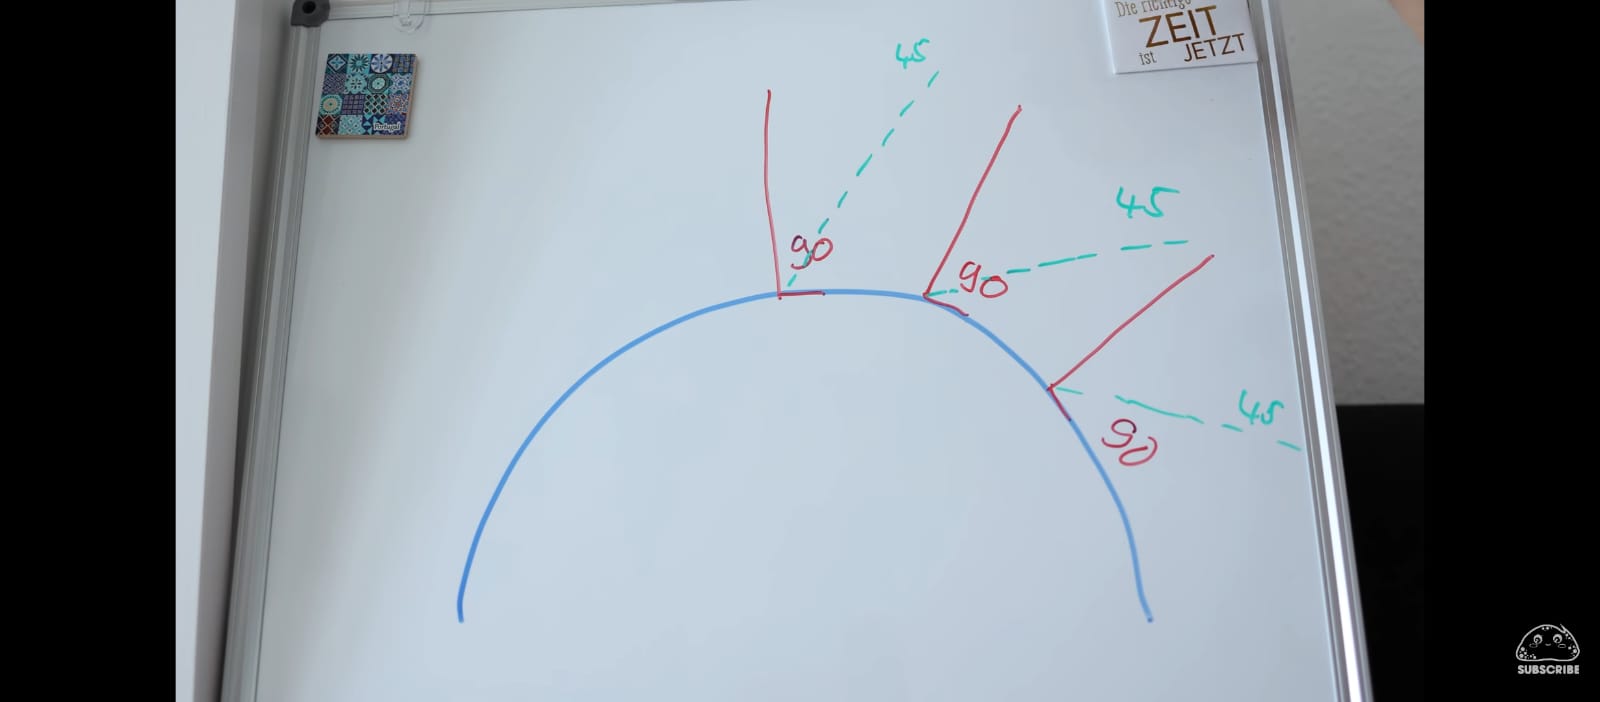 Die richtige
ZEIT
ist JETZT
45
Portugal
45
90
90
45
90
SUBSCRIBE